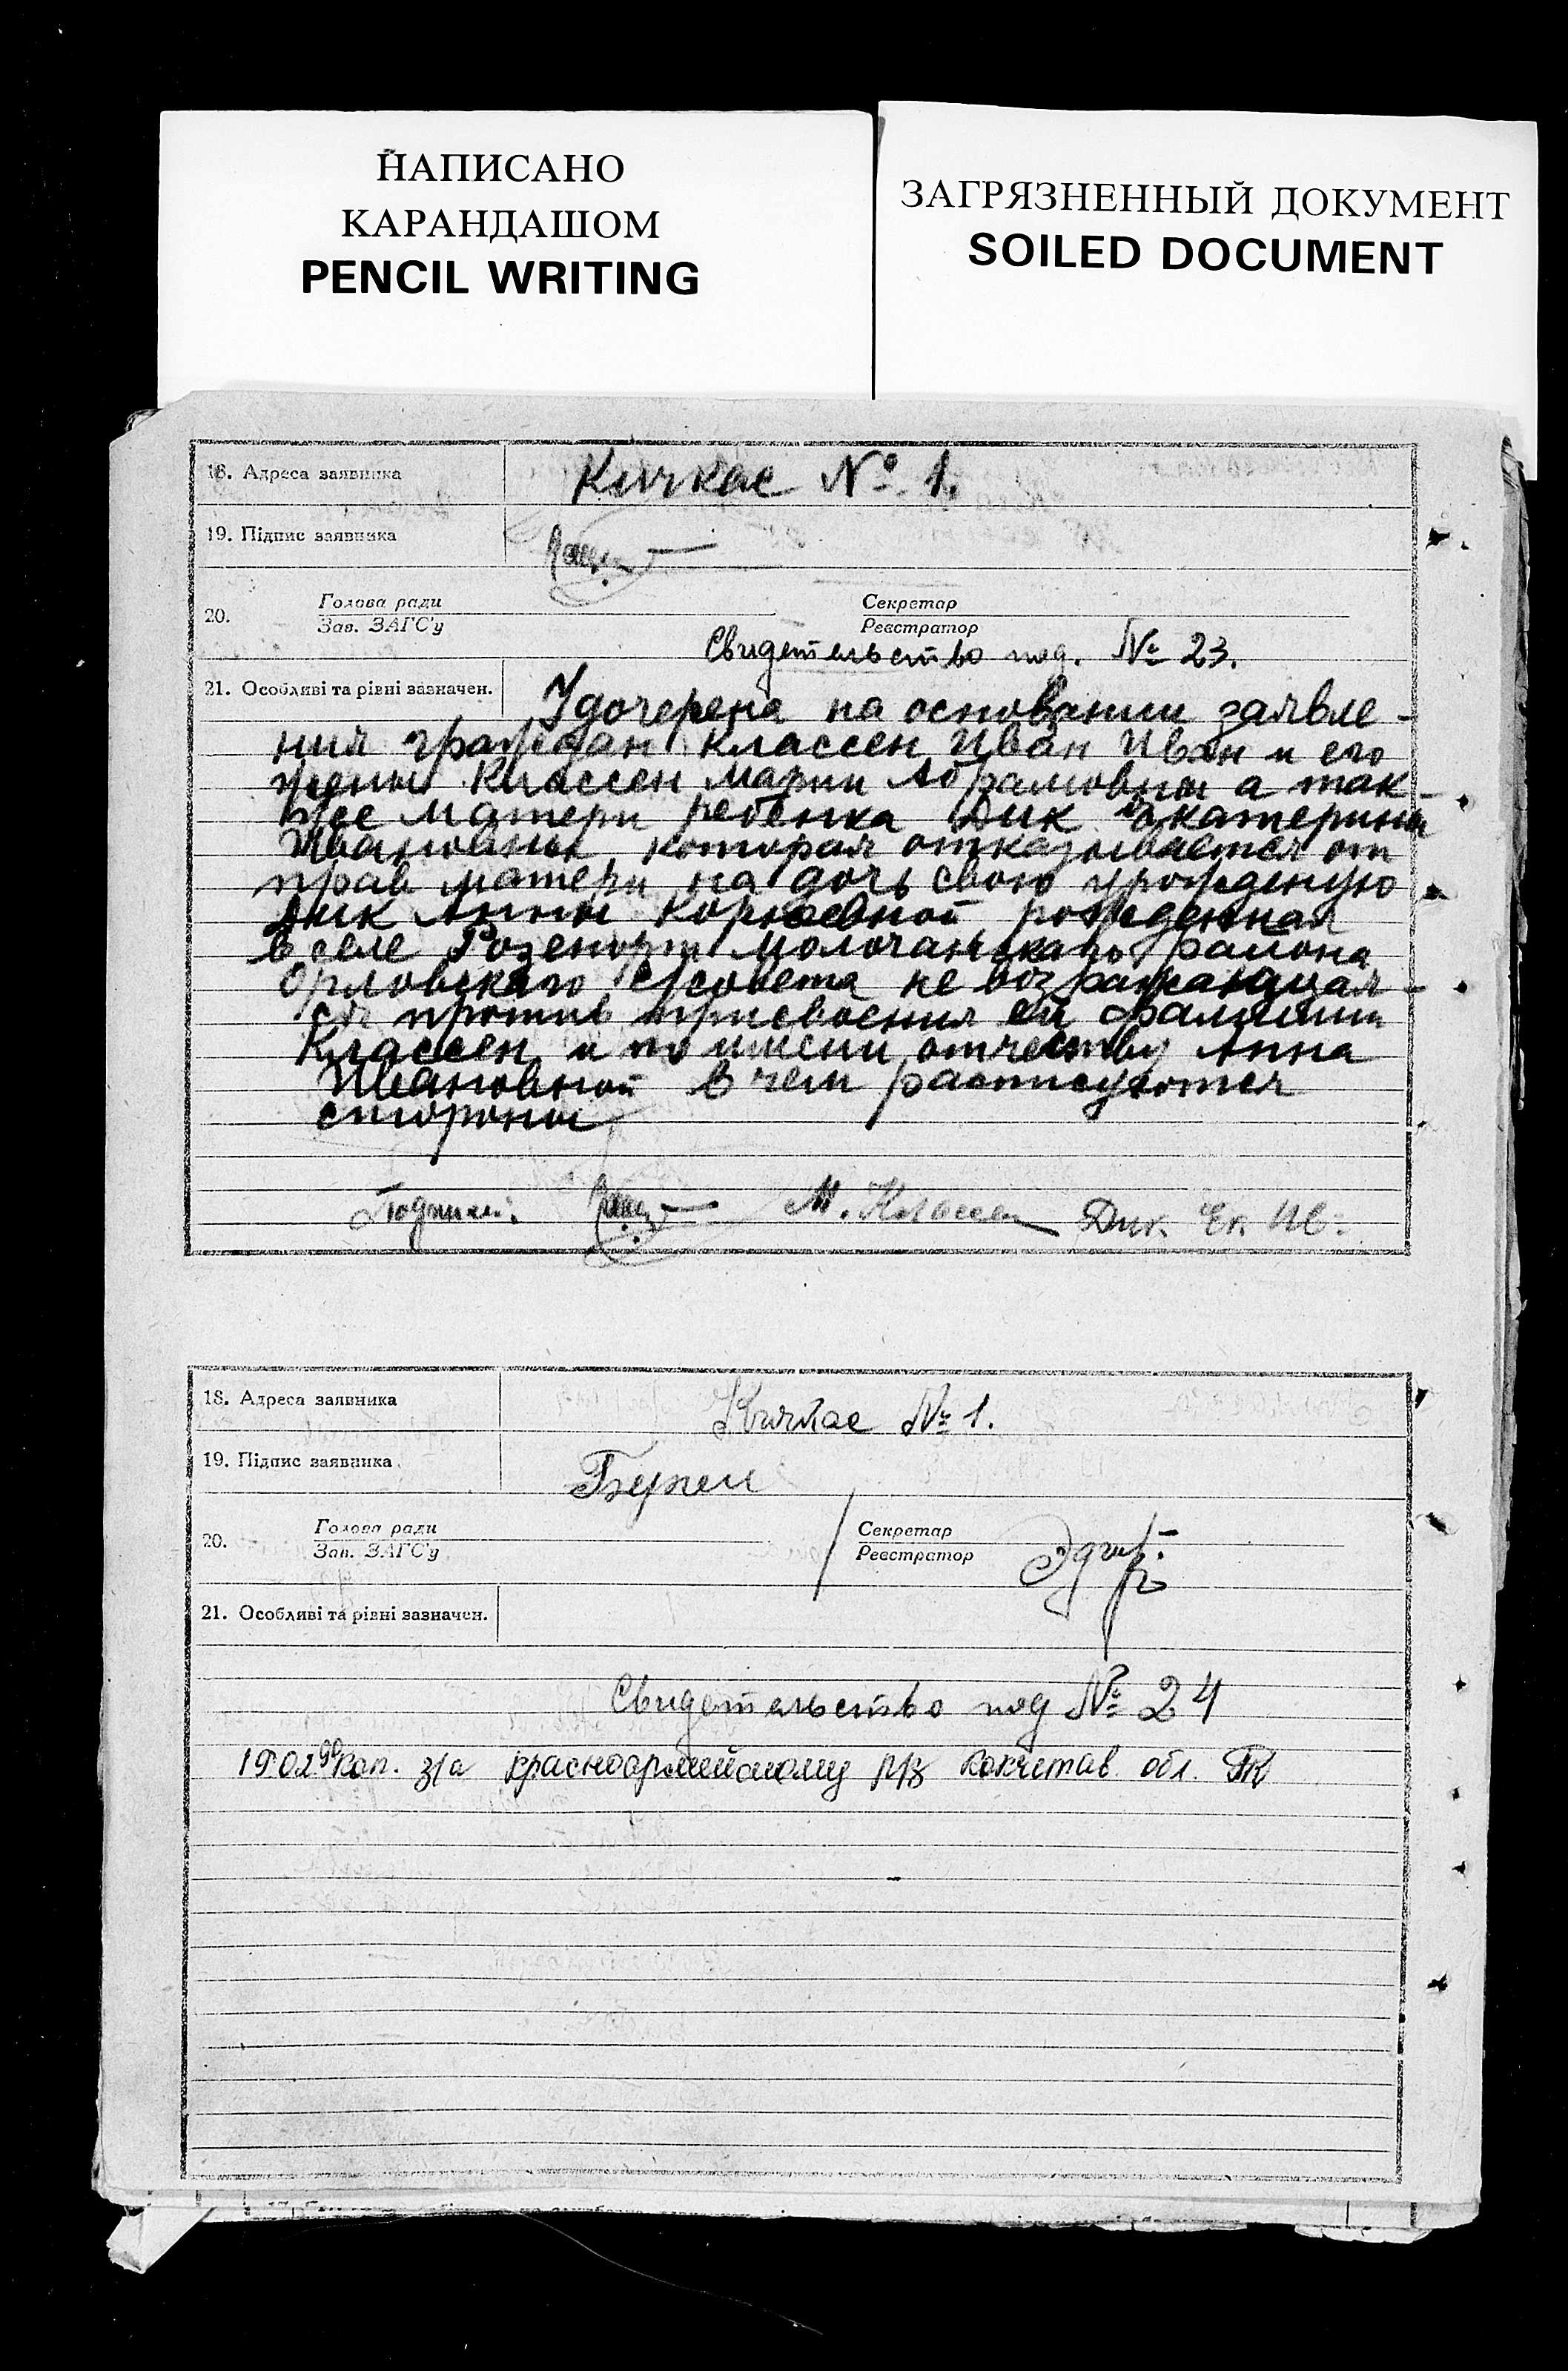 НАПИСАНО
КАРАНДАШОМ
PENCIL WRITING
ЗАГРЯЗНЕННЫЙ ДОКУМЕНТ
SOILED DOCUMENT
18. Адреса заявника Кичкас № 1.
19. Підпис заявника
20. Голова ради Секретар
Зав. ЗАГС'у Реєстратор
Свидетельство под. № 23.
21. Особливі та рівні зазначен. Удочерена на основании заявле-
ния граждан Классен Иван Иван и его
жены Классен Марии Абрамовны а так-
же матери ребенка Дик Екатерины
Ивановны, которая отказывается от
прав матери на дочь свою урожденую
Дик Анны Корнеевной рожденная
в селе Розенорт Молочанскаго района
Орловскаго с/совета не возражающая-
ся против присвоения ей фамилии
Классен и по имени отчеству Анна
Ивановной в чем расписуются
стороны
Подписи: М. Классен Дик Ек Ив.
18. Адреса заявника Кичкас № 1.
19. Підпис заявника
20. Голова ради Секретар
Зав. ЗАГС'у Реєстратор
21. Особливі та рівні зазначен.
Свидетельство под № 24
коп. з/а красноармийскому кокчетав. обл.